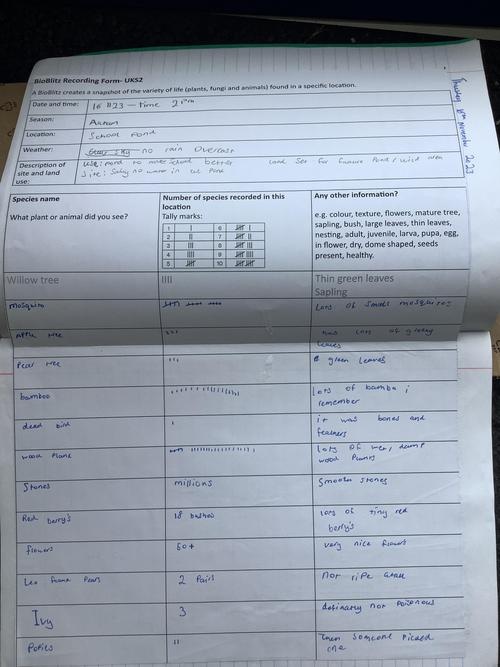 BioBlitz Recording Form- UKS2
A BioBlitz creates a snapshot of the variety of life (plants, fungi and animals) found in a specific location.
Thursday 16th November 2023
Date and time: 16 11 23 — time 2
Season:
Location: School Pond
Weather: no rain Overcast
Description of site and land use:
use: pond to make school better Land set for future Pond / wild area
Site: no water in Pond
Species name
What plant or animal did you see?
Number of species recorded in this location
Tally marks:
1 | 6 |||| |
2 || 7 |||| ||
3 ||| 8 |||| |||
4 |||| 9 |||| ||||
5 |||| 10 |||| ||||
Any other information?
e.g. colour, texture, flowers, mature tree, sapling, bush, large leaves, thin leaves, nesting, adult, juvenile, larva, pupa, egg, in flower, dry, dome shaped, seeds present, healthy.
Willow tree |||| Thin green leaves
Sapling
Mosquito Lots of small mosquitos
Apple tree has lots of
leaves
Pear tree green leaves
bamboo lots of bambo i
remember
dead bird it was bones and
feathers
wood Plank lots of wet, damp
wood Planks
Stones millions Smooth stones
Red berry's 18 bushes lots of tiny red
berry's
flowers 60+ very nice flowers
2 Pairs not ripe
Ivy 3 definatly not Poisonous
Popies || then someone Picked
one